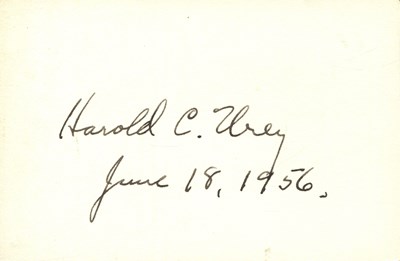 Harold C. Urey
June 18, 1956.